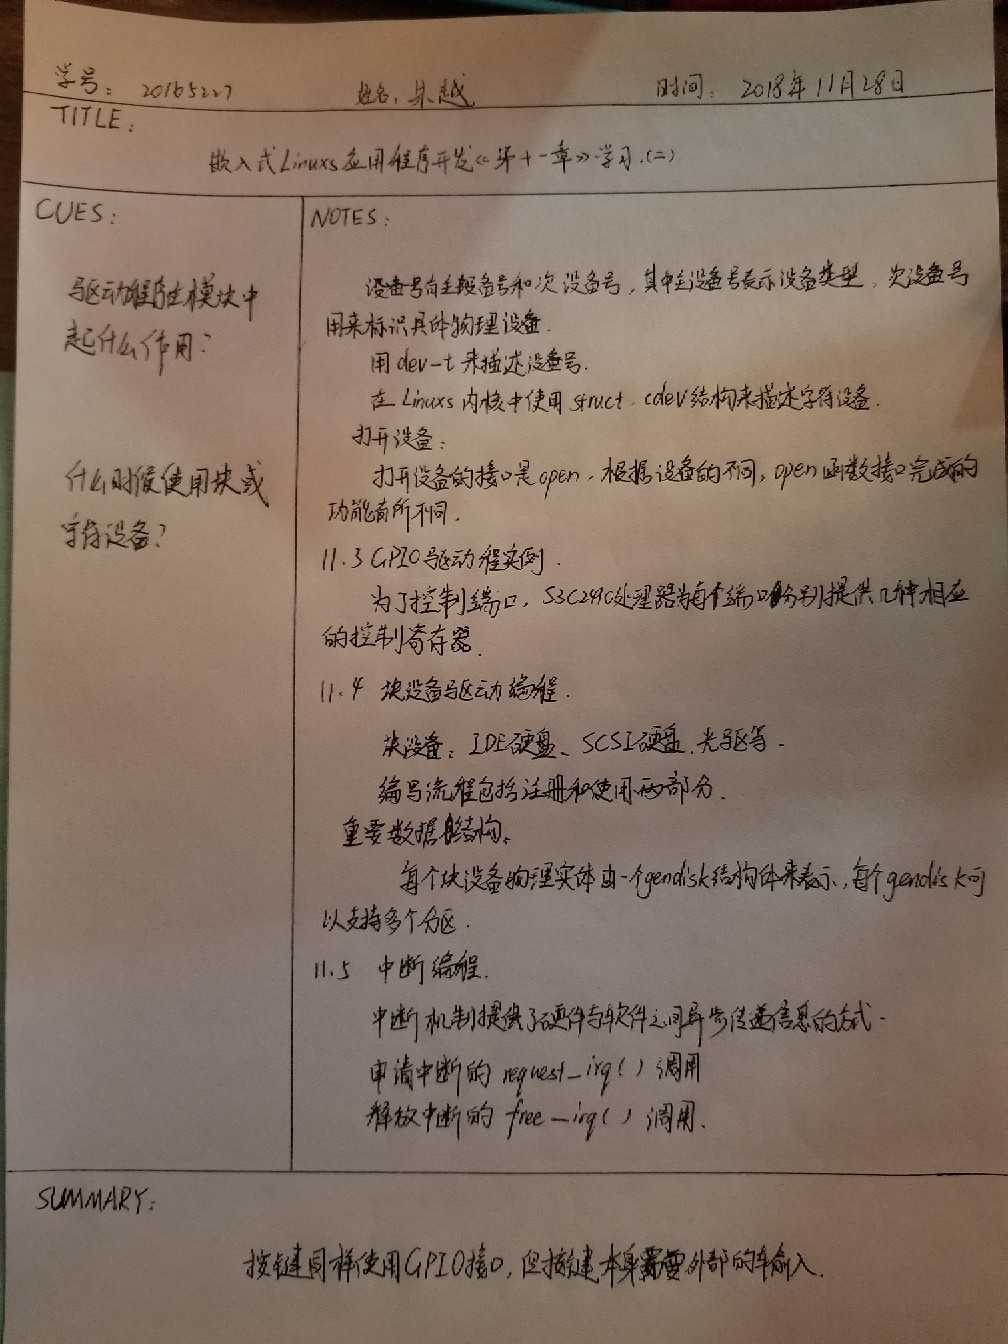 学号：20165227 姓名：朱越 时间：2018年11月28日
TITLE：
嵌入式Linuxs应用程序开发《第十一章》学习(二)
CUES：
驱动程序在模块中
起什么作用？
什么时候使用块或
字符设备？
NOTES：
设备号有主设备号和次设备号，其中主设备号表示设备类型，次设备号
用来标识具体物理设备．
用dev-t来描述设备号．
在Linuxs内核中使用struct cdev结构来描述字符设备．
打开设备：
打开设备的接口是open．根据设备的不同，open函数接口完成的
功能有所不同．
11.3 GPIO驱动程实例．
为了控制端口，S3C2410处理器为每个端口分别提供几种相应
的控制寄存器．
11.4 块设备驱动编程．
块设备：IDE硬盘、SCSI硬盘、光驱等．
编写流程包括注册和使用两部分．
重要数据结构．
每个块设备物理实体由一个gendisk结构体来表示，每个gendisk可
以支持多个分区．
11.5 中断编程．
中断机制提供了硬件与软件之间异步传递信息的方式．
申请中断的request_irq()调用
释放中断的free_irq()调用．
SUMMARY：
按键同样使用GPIO接口，但按键本身需要外部的输入．